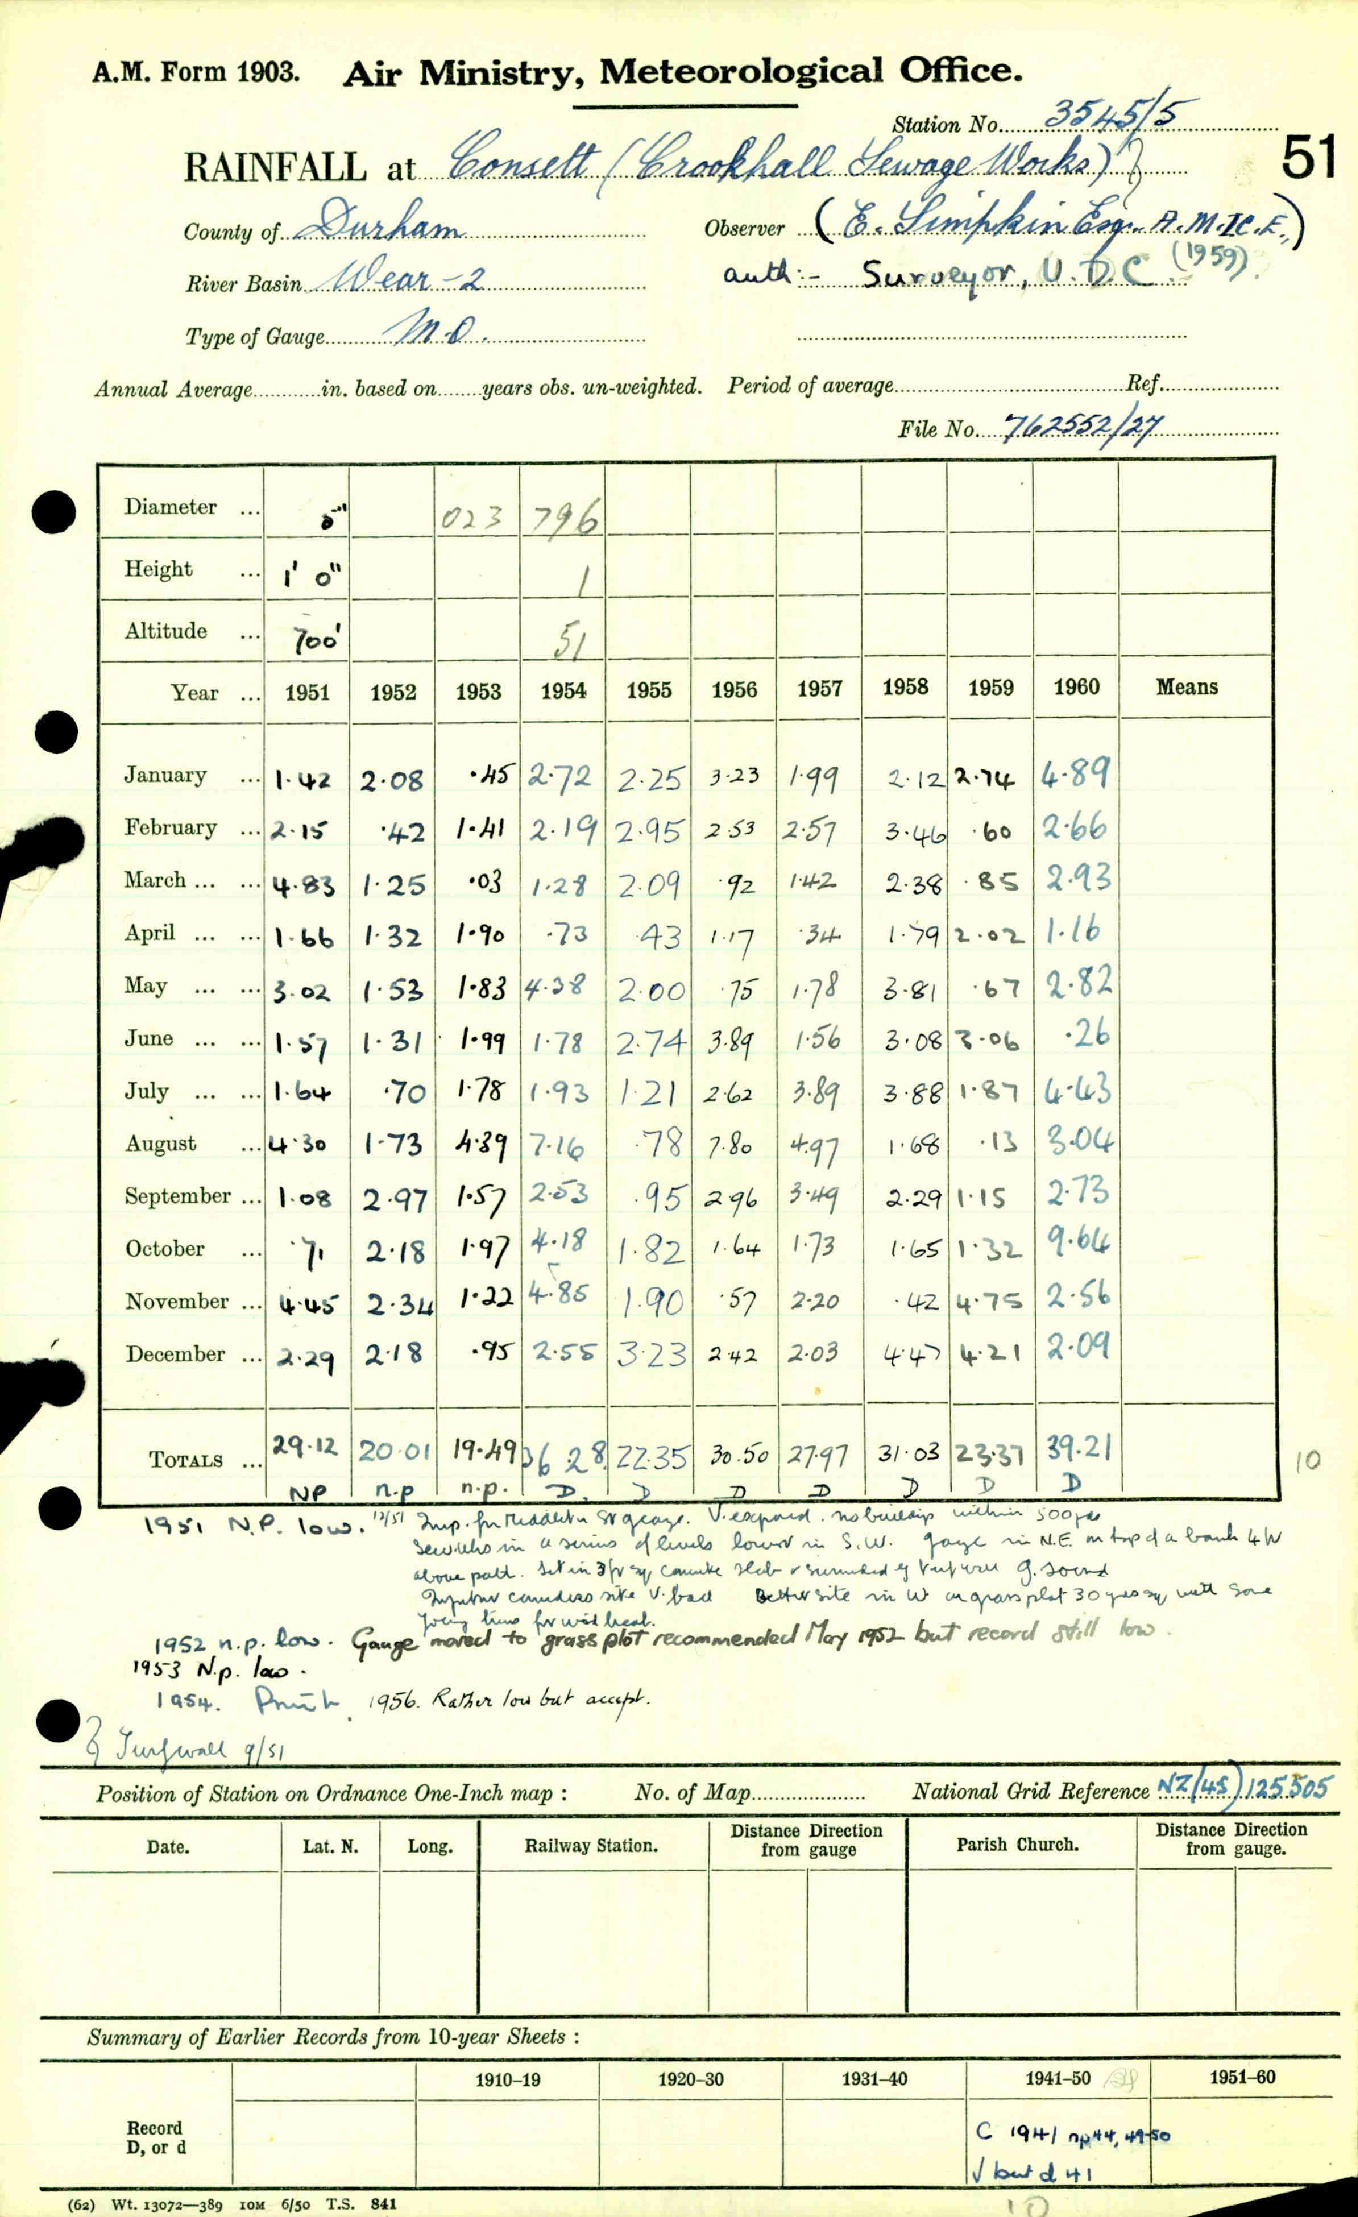 A.M. Form 1903. Air Ministry, Meteorological Office.
Station No. 3545/5
51
RAINFALL at Consett (Crookhall Sewage Works)
County of Durham Observer (E. Simpkin Esq. A.M.I.C.E.,)
River Basin Wear-2 auth:- Surveyor, U.D.C. (1959).
Type of Gauge M.O.
Annual Average in. based on years obs. un-weighted. Period of average Ref.
File No. 762552/27
Diameter ... 023 796
Height ... 1' 0" 1
Altitude ... 700' 51
Year ... 1951 1952 1953 1954 1955 1956 1957 1958 1959 1960 Means
January ... 1.42 2.08 .45 2.72 2.25 3.23 1.99 2.12 2.74 4.89
February ... 2.15 .42 1.41 2.19 2.95 2.53 2.57 3.46 .60 2.66
March ... ... 4.83 1.25 .03 1.28 2.09 .92 1.42 2.38 .85 2.93
April ... ... 1.66 1.32 1.90 .73 .43 1.17 .34 1.79 2.02 1.16
May ... ... 3.02 1.53 1.83 4.38 2.00 .75 1.78 3.81 .67 2.82
June ... ... 1.57 1.31 1.99 1.78 2.74 3.89 1.56 3.08 3.06 .26
July ... ... 1.64 .70 1.78 1.93 1.21 2.62 3.89 3.88 1.87 4.43
August ... 4.30 1.73 4.39 7.16 .78 7.80 4.97 1.68 .13 3.04
September ... 1.08 2.97 1.57 2.53 .95 2.96 3.49 2.29 1.15 2.73
October ... .71 2.18 1.97 4.18 1.82 1.64 1.73 1.65 1.32 9.64
November ... 4.45 2.34 1.22 4.85 1.90 .57 2.20 .42 4.75 2.56
December ... 2.29 2.18 .95 2.55 3.23 2.42 2.03 4.47 4.21 2.09
TOTALS ... 29.12 20.01 19.49 36.28 22.35 30.50 27.97 31.03 23.37 39.21 10
NP n.p n.p. D. D D D D D D
1951 N.P. low. 12/51 Insp. V. exposed. no buildings within 500 yds
in a series of levels lower in S.W. gauge in N.E. on top of a bank 4 ft
above path. Set in 3 ft sq concrete slab & surrounded by turf wall G. sound
Inspector considers site v. bad Better site in W on grass plot 30 yds sq with some
young trees for wind break.
1952 n.p. low. Gauge moved to grass plot recommended May 1952 but record still low.
1953 N.p. low.
1954. 1956. Rather low but accept.
Turfwall 9/51
Position of Station on Ordnance One-Inch map : No. of Map National Grid Reference NZ (45) 125505
Date. Lat. N. Long. Railway Station. Distance Direction from gauge Parish Church. Distance Direction from gauge.
Summary of Earlier Records from 10-year Sheets :
1910–19 1920–30 1931–40 1941–50 1951–60
Record
D, or d
C 1941 np 44, 49-50
√ but d 41
(62) Wt. 13072—389 10M 6/50 T.S. 841
10